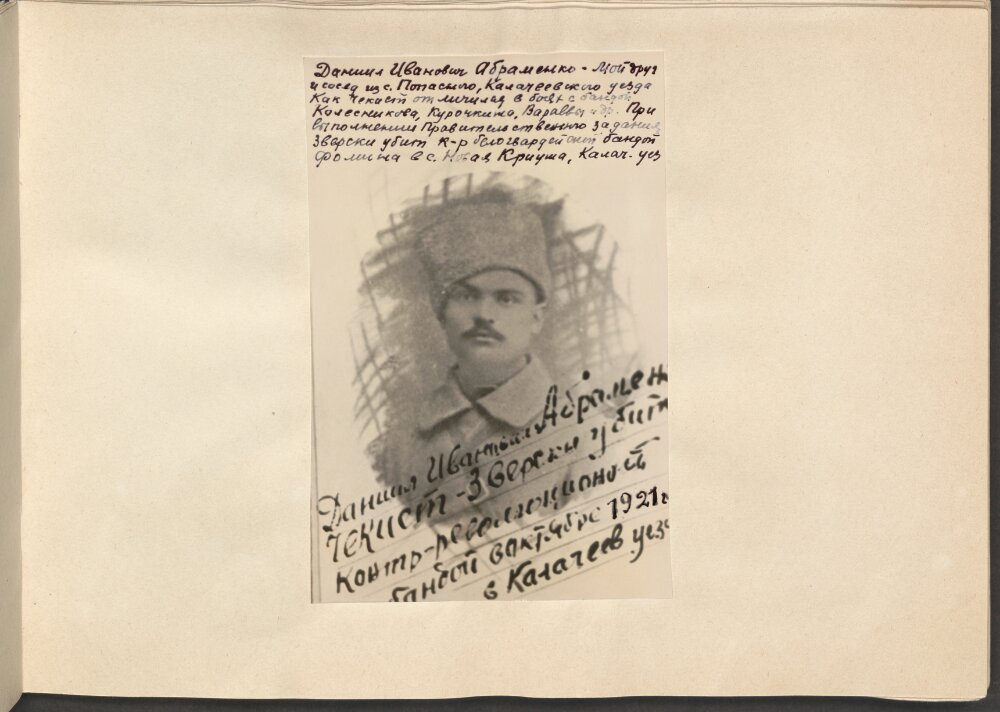 Даниил Иванович Абраменко - Мой друг
и сосед из с. Попасного, Калачеевского уезда
Как чекист отличился в боях с бандой
Колесникова, Курочкина, Вараввы и др. При
выполнении Правительственного задания
Зверски убит к-р белогвардейской бандой
Фомина в с. Новая Криуша, Калач. уез
Даниил Иванович Абрамен
Чекист - Зверски убит
контр-революционной
бандой в октябре 1921г
в Калачеев уез